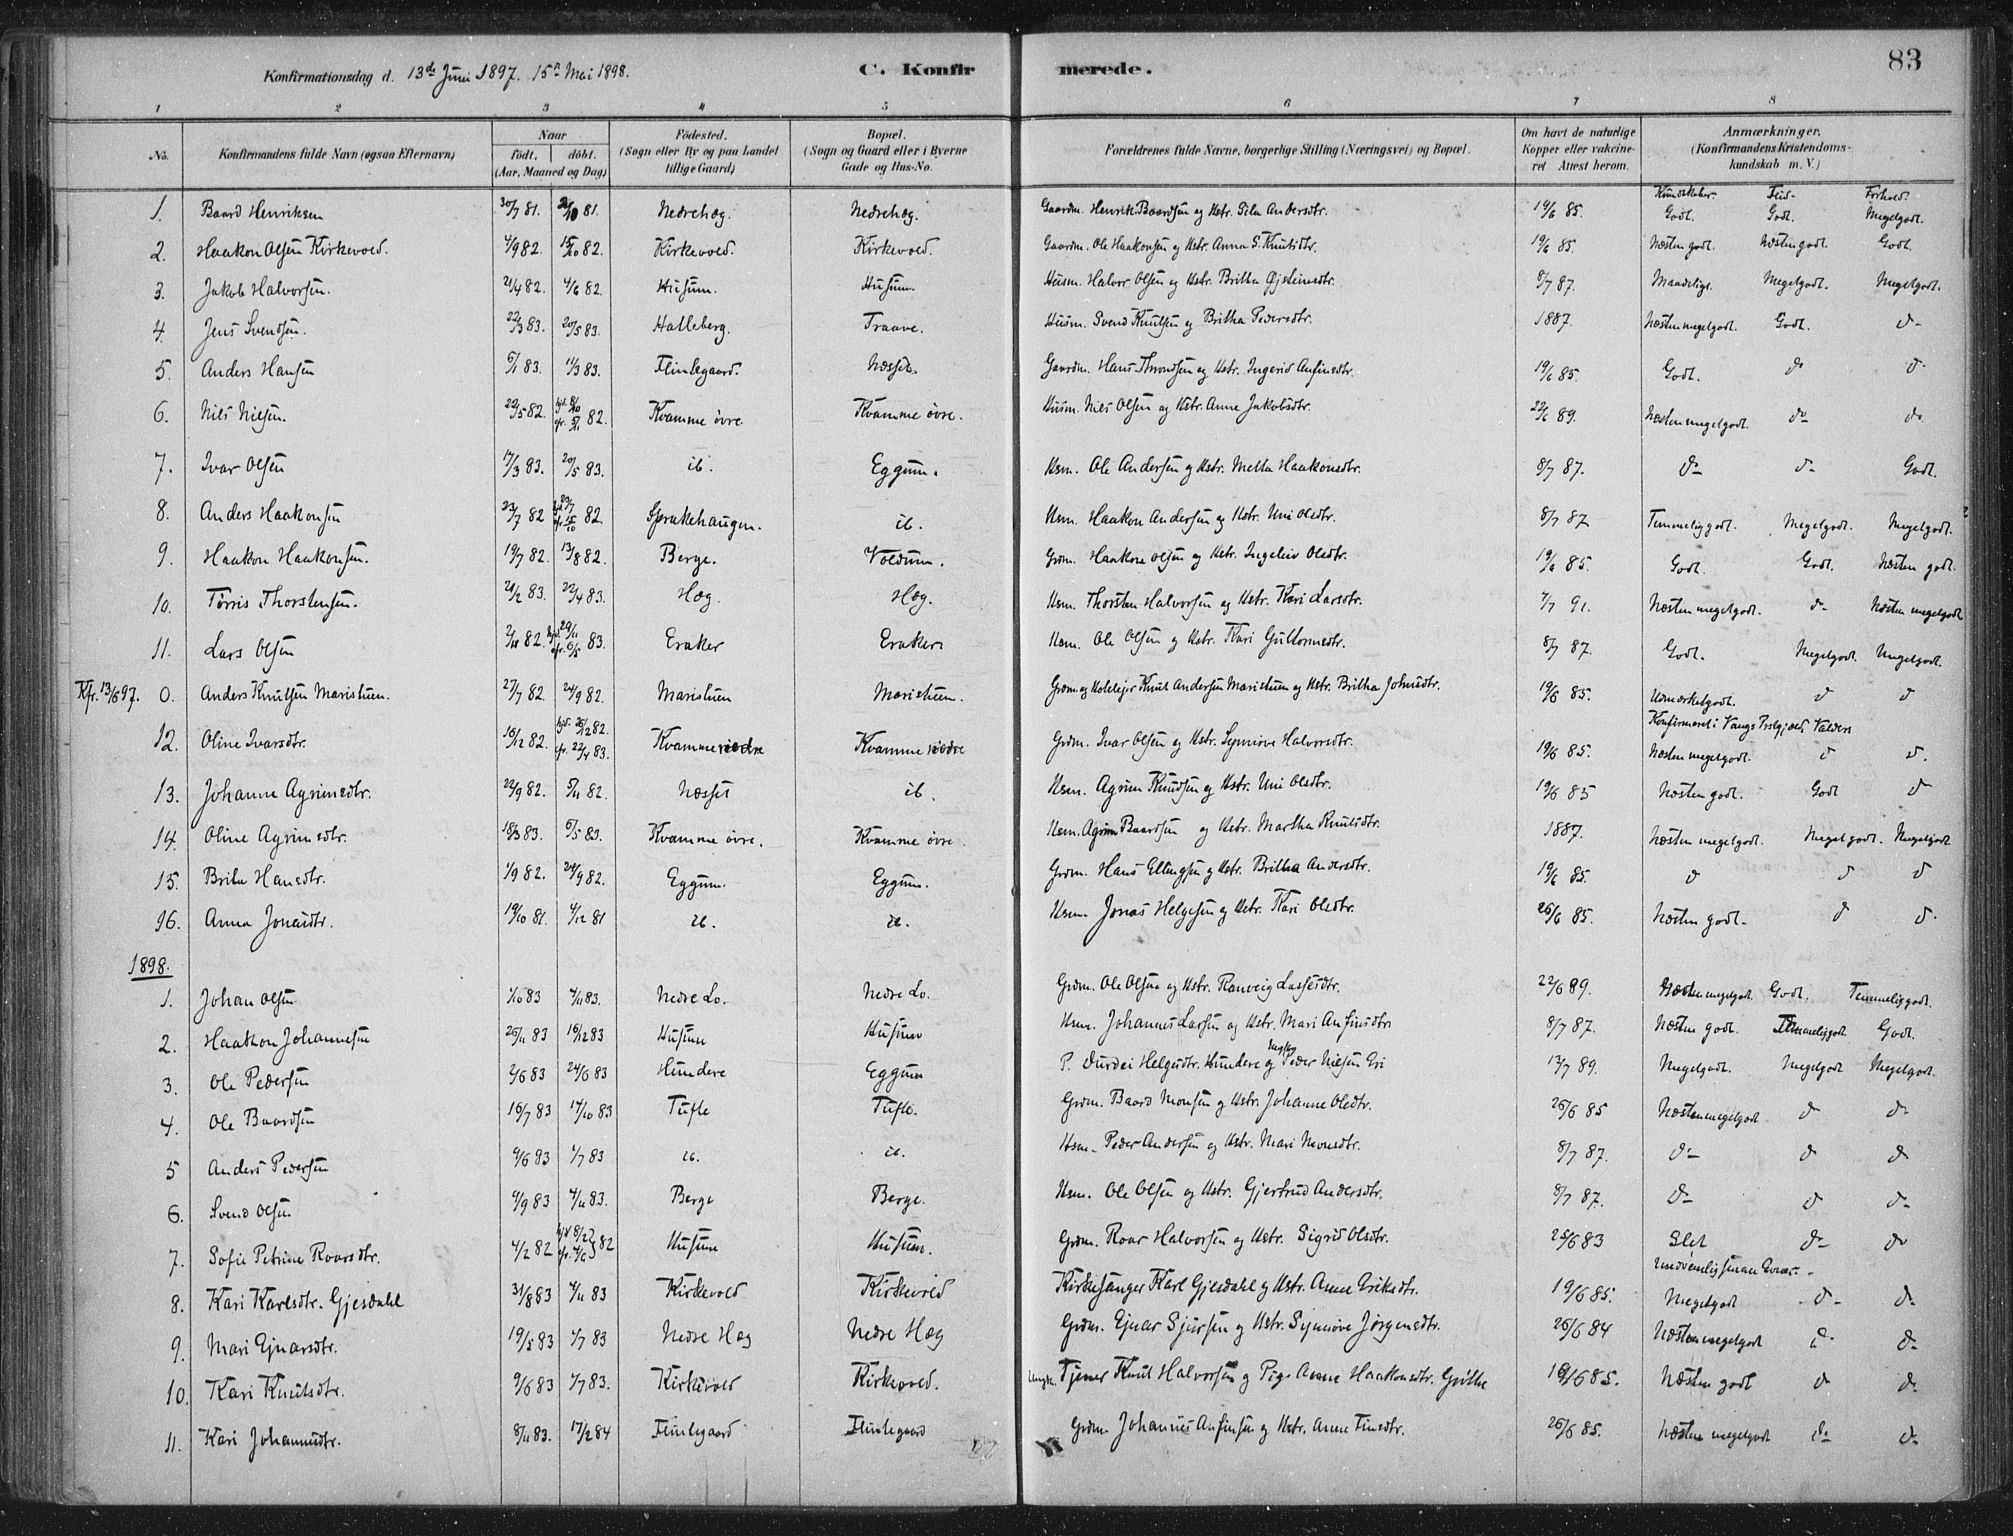 83
Konfirmationsdag d. 13de Juni 1897. 15n Mai 1898. C. Konfirmerede.
1 2 3 4 5 6 7 8
No. Konfirmandens fulde Navn (ogsaa Efternavn) Naar født, døbt. (Aar, Maaned og Dag) Fødested. (Sogn eller By og paa Landet tillige Gaard) Bopæl. (Sogn og Gaard eller i Byerne Gade og Hus-No. Forældrenes fulde Navne, borgerlige Stilling (Næringsvei) og Bopæl. Om havt de naturlige Kopper eller vakcineret Attest herom. Anmærkninger. (Konfirmandens Kristendomskundskab m. V.)
Kundskaber. Flid. Forhold.
1. Baard Henriksen 30/7 81. 81. Nedrehæg. Nedrehæg. Gaardm. Henrik Baardsen og Kstr. Andersdtr. 19/6 85. Godt. Godt. Megetgodt.
2. Haakon Olsen Kirkevold. 4/9 82. 15/10 82. Kirkevold. Kirkevold. Gaardm. Ole Haakonsen og Kstr. Anna S. Knutsdtr. 19/6 85. Næsten godt. Næsten godt. Godt.
3. Jakob Halvorsen. 21/4 82. 4/6 82. Husum. Husum. Husm. Halvor Olsen og Kstr. Britha Øisteinsdtr. 8/7 87. Maadeligt. Megetgodt. Megetgodt.
4. Jens Svendsen. 22/3 83. 20/5 83. Halleberg. Traave. Husm. Svend Knutsen og Britha Pedersdtr. 1887. Næsten megetgodt. Godt. do
5. Anders Hansen 6/1 83. 11/3 83. Flinlegaard. Næsset. Gaardm. Hans Throndsen og Kstr. Ingerid Anfinsdtr. 19/6 85. Godt. do do
6. Nils Nilsen. 22/5 82. hjd. 8/10 fr. 5/11 82. Kvamme øvre. Kvamme øvre. Husm. Nils Olsen og Kstr. Anne Jakobsdtr. 22/6 89. Næsten megetgodt. do do
7. Ivar Olsen 17/3 83. 20/5 83. ib. Eggum. Hsm. Ole Andersen og Kstr. Metta Haakonsdtr. 8/7 87. do do Godt.
8. Anders Haakonsen 23/7 82 82. Sprakehaugen. ib. Hsm. Haakon Andersen og Kstr. Uni Olsdtr. 8/7 87 Temmelig godt. Megetgodt. Megetgodt.
9. Haakon Haakonsen. 19/7 82. 13/8 82. Berge. Voldum. Grdm. Haakon Olsen og Kstr. Ingeleiv Olsdtr. 19/6 85. Godt. Godt. Næsten godt.
10. Tørris Thorstensen. 21/2 83. 22/4 83. Hæg. Hæg. Hsm. Thorsten Halvorsen og Kstr. Kari Larsdtr. 7/7 91. Næsten megetgodt. do Næsten megetgodt
11. Lars Olsen 82. hjd. 29/11 fr. 6/5 83. Eraker Eraker. Hsm. Ole Olsen og Kstr. Kari Guttormsdtr. 8/7 87. Godt. Megetgodt. Megetgodt.
Kfr. 13/6 97. 0. Anders Knutsen Maristuen. 27/7 82. 24/9 82. Maristuen Maristuen. Grdm og Hotelejr Knut Andersen Maristuen og Kstr. Britha Johnsdtr. 19/6 85. Udmærketgodt. do do
Konfirmeret i Vangs Prstgjæld, Valders
12. Oline Ivarsdtr. 16/12 82. hjd. 26/12 82. fr. 22/4 83. Kvamme nedre Kvamme nedre Grdm. Ivar Olsen og Kstr. Synnøve Halvorsdtr. 19/6 85. Næsten megetgodt. do do
13. Johanne Agrimsdtr. 22/9 82. 5/11 82. Næsset ib. Hsm. Agrim Knudsen og Kstr. Uni Olsdtr. 19/6 85 Næsten godt. Godt do
14. Oline Agrimsdtr. 18/3 83. 6/5 83. Kvamme øvre. Kvamme øvre. Hsm. Agrim Baardsen og Kstr. Martha Knutsdtr. 1887. Næsten megetgodt. Megetgodt. Megetgodt
15. Brita Hansdtr. 1/9 82. 24/9 82. Eggum. Eggum. Grdm. Hans Ellingsen og Kstr. Britha Andersdtr. 19/6 85. do do do
16. Anna Jonasdtr. 19/10 81. 4/12 81 ib. ib. Hsm. Jonas Helgesen og Kstr. Kari Olsdtr. 26/6 85. Næsten godt. do do
1898.
1. Johan Olsen 1/10 83 4/11 83. Nedre Lo. Nedre Lo. Grdm. Ole Olsen og Kstr. Ranveig Lassesdtr. 22/6 89. Næsten megetgodt Godt. Temmelig godt.
2. Haakon Johannesen 25/11 83 16/12 83 Husum Husum Hsm. Johannes Larsen og Kstr. Mari Anfinsdtr. 8/7 87. Næsten godt. Temmelig godt Godt.
3. Ole Pedersen 2/6 83 24/6 83 Hundere Eggum P. Durdei Helgesdtr. Hundere og Ungkar Peder Nielsen Eri 13/7 89. Megetgodt. Megetgodt Megetgodt.
4. Ole Baardsen 16/7 83 14/10 83 Tufte Tufte. Grdm. Baard Monsen og Kstr. Johanne Olsdtr. 26/6 85 Næsten megetgodt do do
5 Anders Pedersen 9/6 83 1/7 83 ib. ib. Hsm. Peder Andersen og Kstr. Mari Monsdtr. 8/7 87. do do do
6. Svend Olsen 9/9 83 4/11 83. Berge Berge. Hsm. Ole Olsen og Kstr. Gjertrud Andersdtr. 8/7 87. do do do
7. Sofie Petrine Roarsdtr. 4/2 82 hjd 8/2 fr. 4/6 } 82 Husum Husum. Grdm. Roar Halvorsen og Kstr. Sigrid Olsdtr. 25/6 83 Slet do do
8. Kari Karlsdtr. Gjesdahl 31/8 83 4/11 83 Kirkevold Kirkevold Kirkesanger Karl Gjesdahl og Kstr. Anna Eriksdtr. 19/6 85. Megetgodt do do
9. Mari Ejnarsdtr. 19/5 83 1/7 83 Nedre Hæg Nedre Hæg Grdm. Ejnar Sjursen og Kstr. Synnøve Jørgensdtr. 26/6 84 Næsten megetgodt do do
10. Kari Knutsdtr. 9/6 83 1/7 83. Kirkevold Kirkevold. Ungk. Tjener Knut Halvorsen og Pige Anne Haakonsdtr. 19/6 85. Næsten godt do do
11. Kari Johannesdtr. 8/11 83. 17/2 84 Flinlegaard Flinlegaard Grdm Johannes Anfinsen og Kstr. Anne Finsdtr. 26/6 85. Næsten megetgodt do do